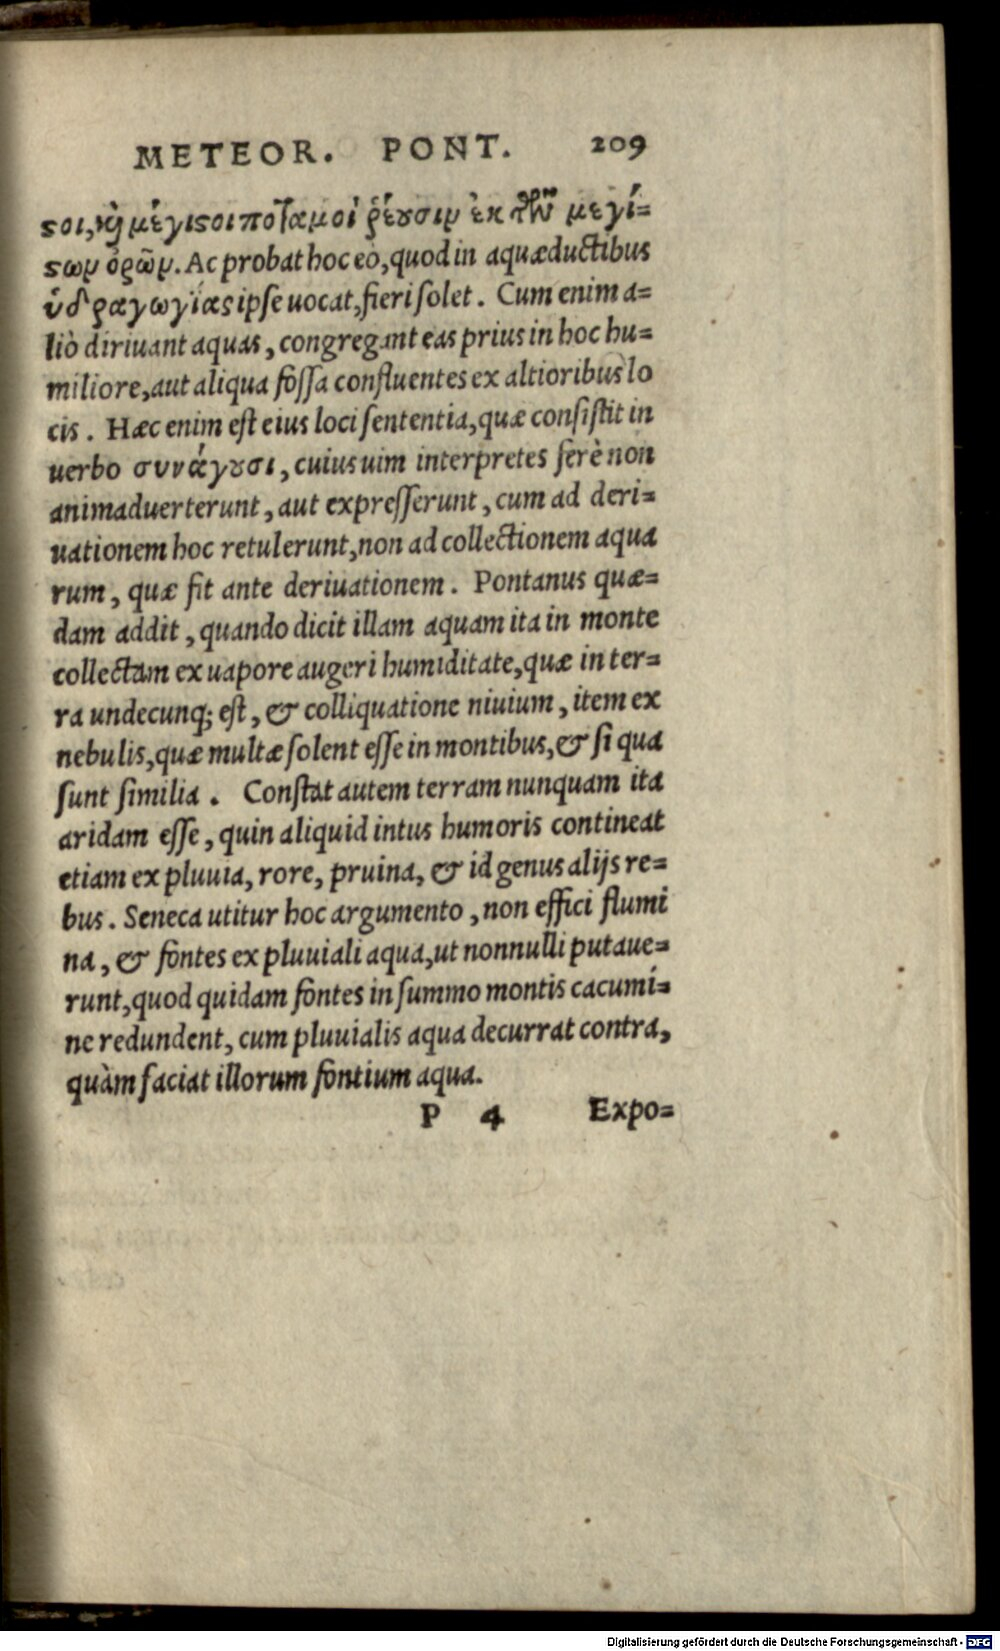 METEOR. PONT. 209
ϛοι, καὶ μέγιϛοι ποταμοὶ ῥέουσιν ἐκ τῶν μεγί=
ϛων ὀρῶν. Ac probat hoc eò, quod in aquæductibus
ὑδραγωγίας ipse uocat, fieri solet. Cum enim a=
liò diriuant aquas, congregant eas prius in hoc hu=
miliore, aut aliqua fossa confluentes ex altioribus lo
cis. Hæc enim est eius loci sententia, quæ consistit in
uerbo συνάγουσι, cuius uim interpretes ferè non
animaduerterunt, aut expresserunt, cum ad deri=
uationem hoc retulerunt, non ad collectionem aqua
rum, quæ fit ante deriuationem. Pontanus quæ=
dam addit, quando dicit illam aquam ita in monte
collectam ex uapore augeri humiditate, quæ in ter=
ra undecunq; est, & colliquatione niuium, item ex
nebulis, quæ multæ solent esse in montibus, & si qua
sunt similia. Constat autem terram nunquam ita
aridam esse, quin aliquid intus humoris contineat
etiam ex pluuia, rore, pruina, & id genus alijs re=
bus. Seneca utitur hoc argumento, non effici flumi
na, & fontes ex pluuiali aqua, ut nonnulli putaue=
runt, quod quidam fontes in summo montis cacumi=
ne redundent, cum pluuialis aqua decurrat contra,
quàm faciat illorum fontium aqua.
P 4 Expo=
Digitalisierung gefördert durch die Deutsche Forschungsgemeinschaft - DFG